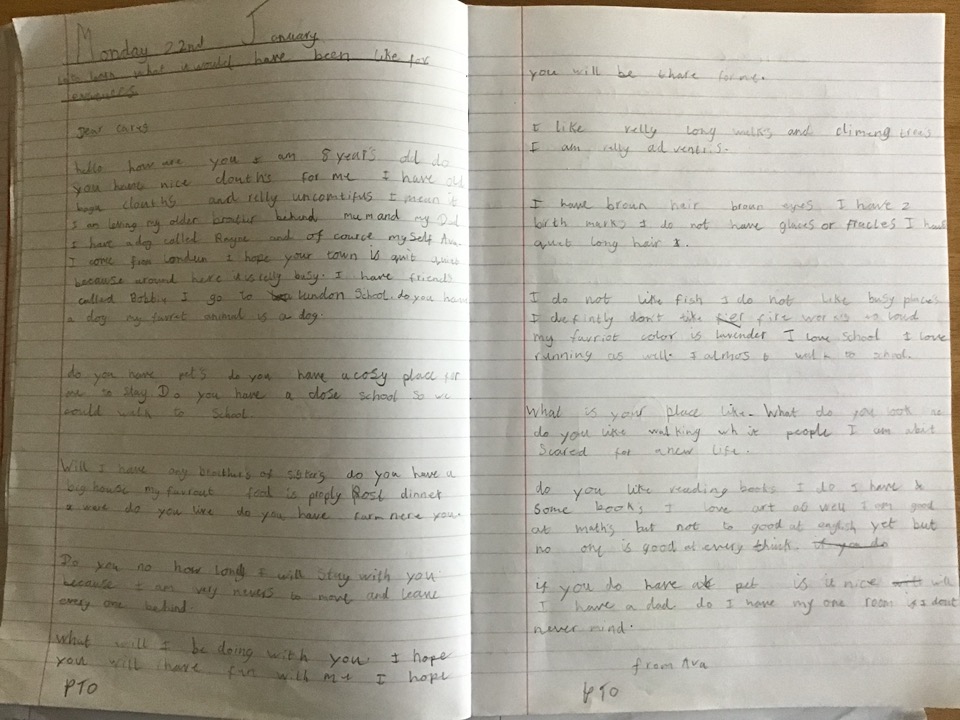 Monday 22nd January
what it would have been like for
evacuees
Dear cares
hello how are you I am 8 year's old do
you have nice clouth's for me I have old
clouths and relly uncomtifus I mean it
I am leving my older brother behind mum and my Dad
I have a dog called and of cource my self Ava.
I come from London I hope your town is quit quiet
because around here it's relly busy. I have friend
called Bobby I go to London School. do you have
a dog my favret animal is a dog.
do you have pet's do you have a cosy place for
me to stay Do you have a close school so we
could walk to School.
Will I have any brothers or sisters do you have a
big house my favrout food is proply Rost dinner
a were do you live do you have farm nere you.
Do you no how long I will stay with you
because I am very nevers to move and leave
every one behind.
What will I be doing with you I hope
you will have fun with me I hope
PTO
you will be thare for me.
I like relly long walks and climeng trees
I am relly adventris.
I have broun hair broun eyes I have 2
birth marks I do not have glases or fracles I have
quit long hair
I do not like fish I do not like busy places
I defintly don't like fier fire works to loud
my favriot color is lavender I love school I love
running as well. I almos walk to school.
What is your place like. What do you look
do you like walking people I am abit
Scared for a new life.
do you like reading books I do I have
some books I love art as well I am good
at maths but not to good at english yet but
no one is good at every think. if you do
if you do have pet is it nice will
I have a dad do I have my one room if I dont
never mind.
from Ava
PTO